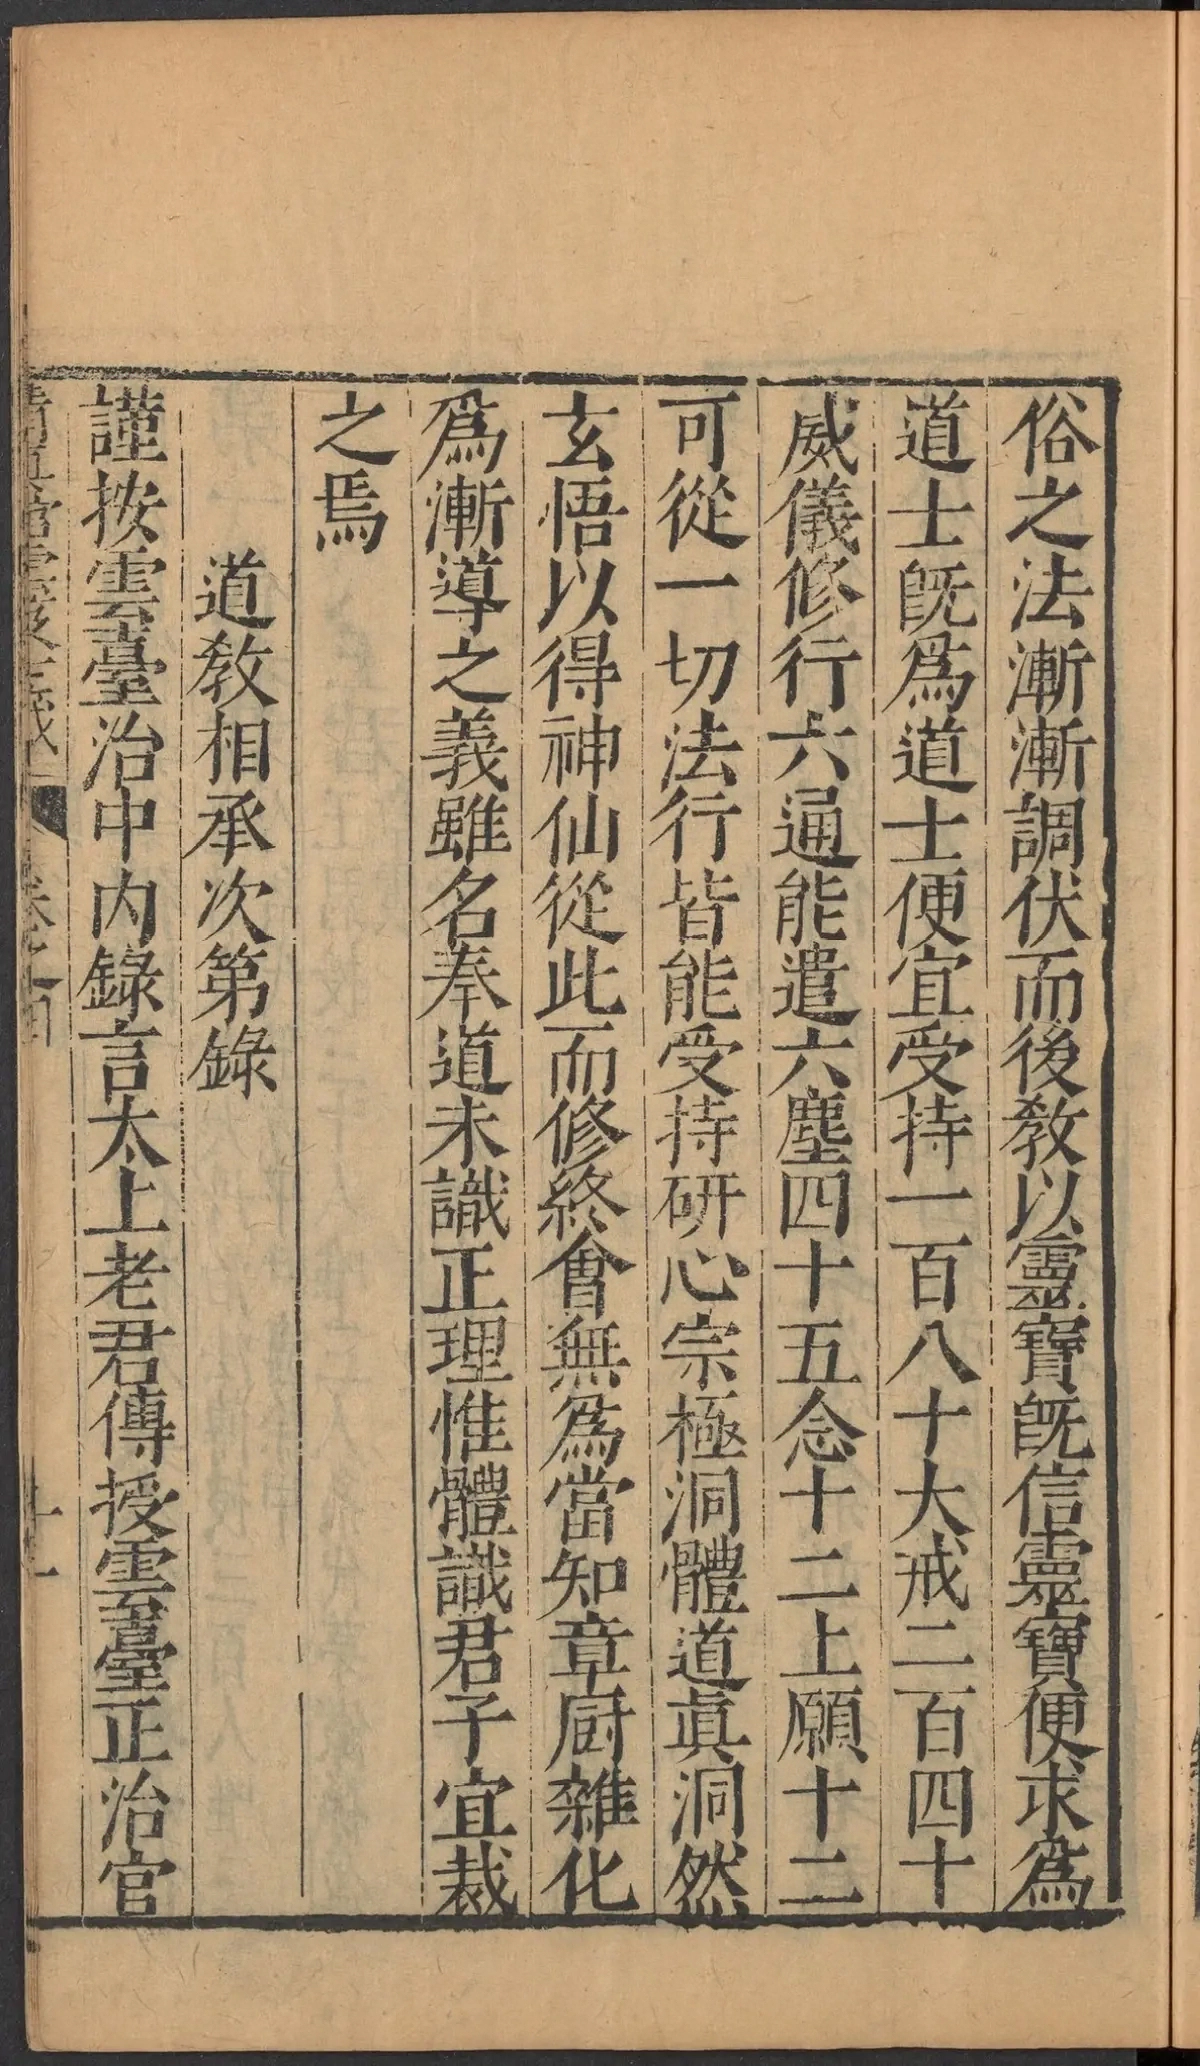 俗之法漸漸調伏而後敎以靈寶旣信靈寶便求爲
道士旣爲道士便宜受持一百八十大戒二百四十
威儀修行六通能遣六塵四十五念十二上願十二
可從一切法行皆能受持研心宗極洞體道眞洞然
玄悟以得神仙從此而修終會無爲當知章厨雜化
爲漸導之義雖名奉道未識正理惟體識君子宜裁
之焉
道敎相承次第錄
謹按雲臺治中內錄言太上老君傳授雲臺正治官
卷之四
十一